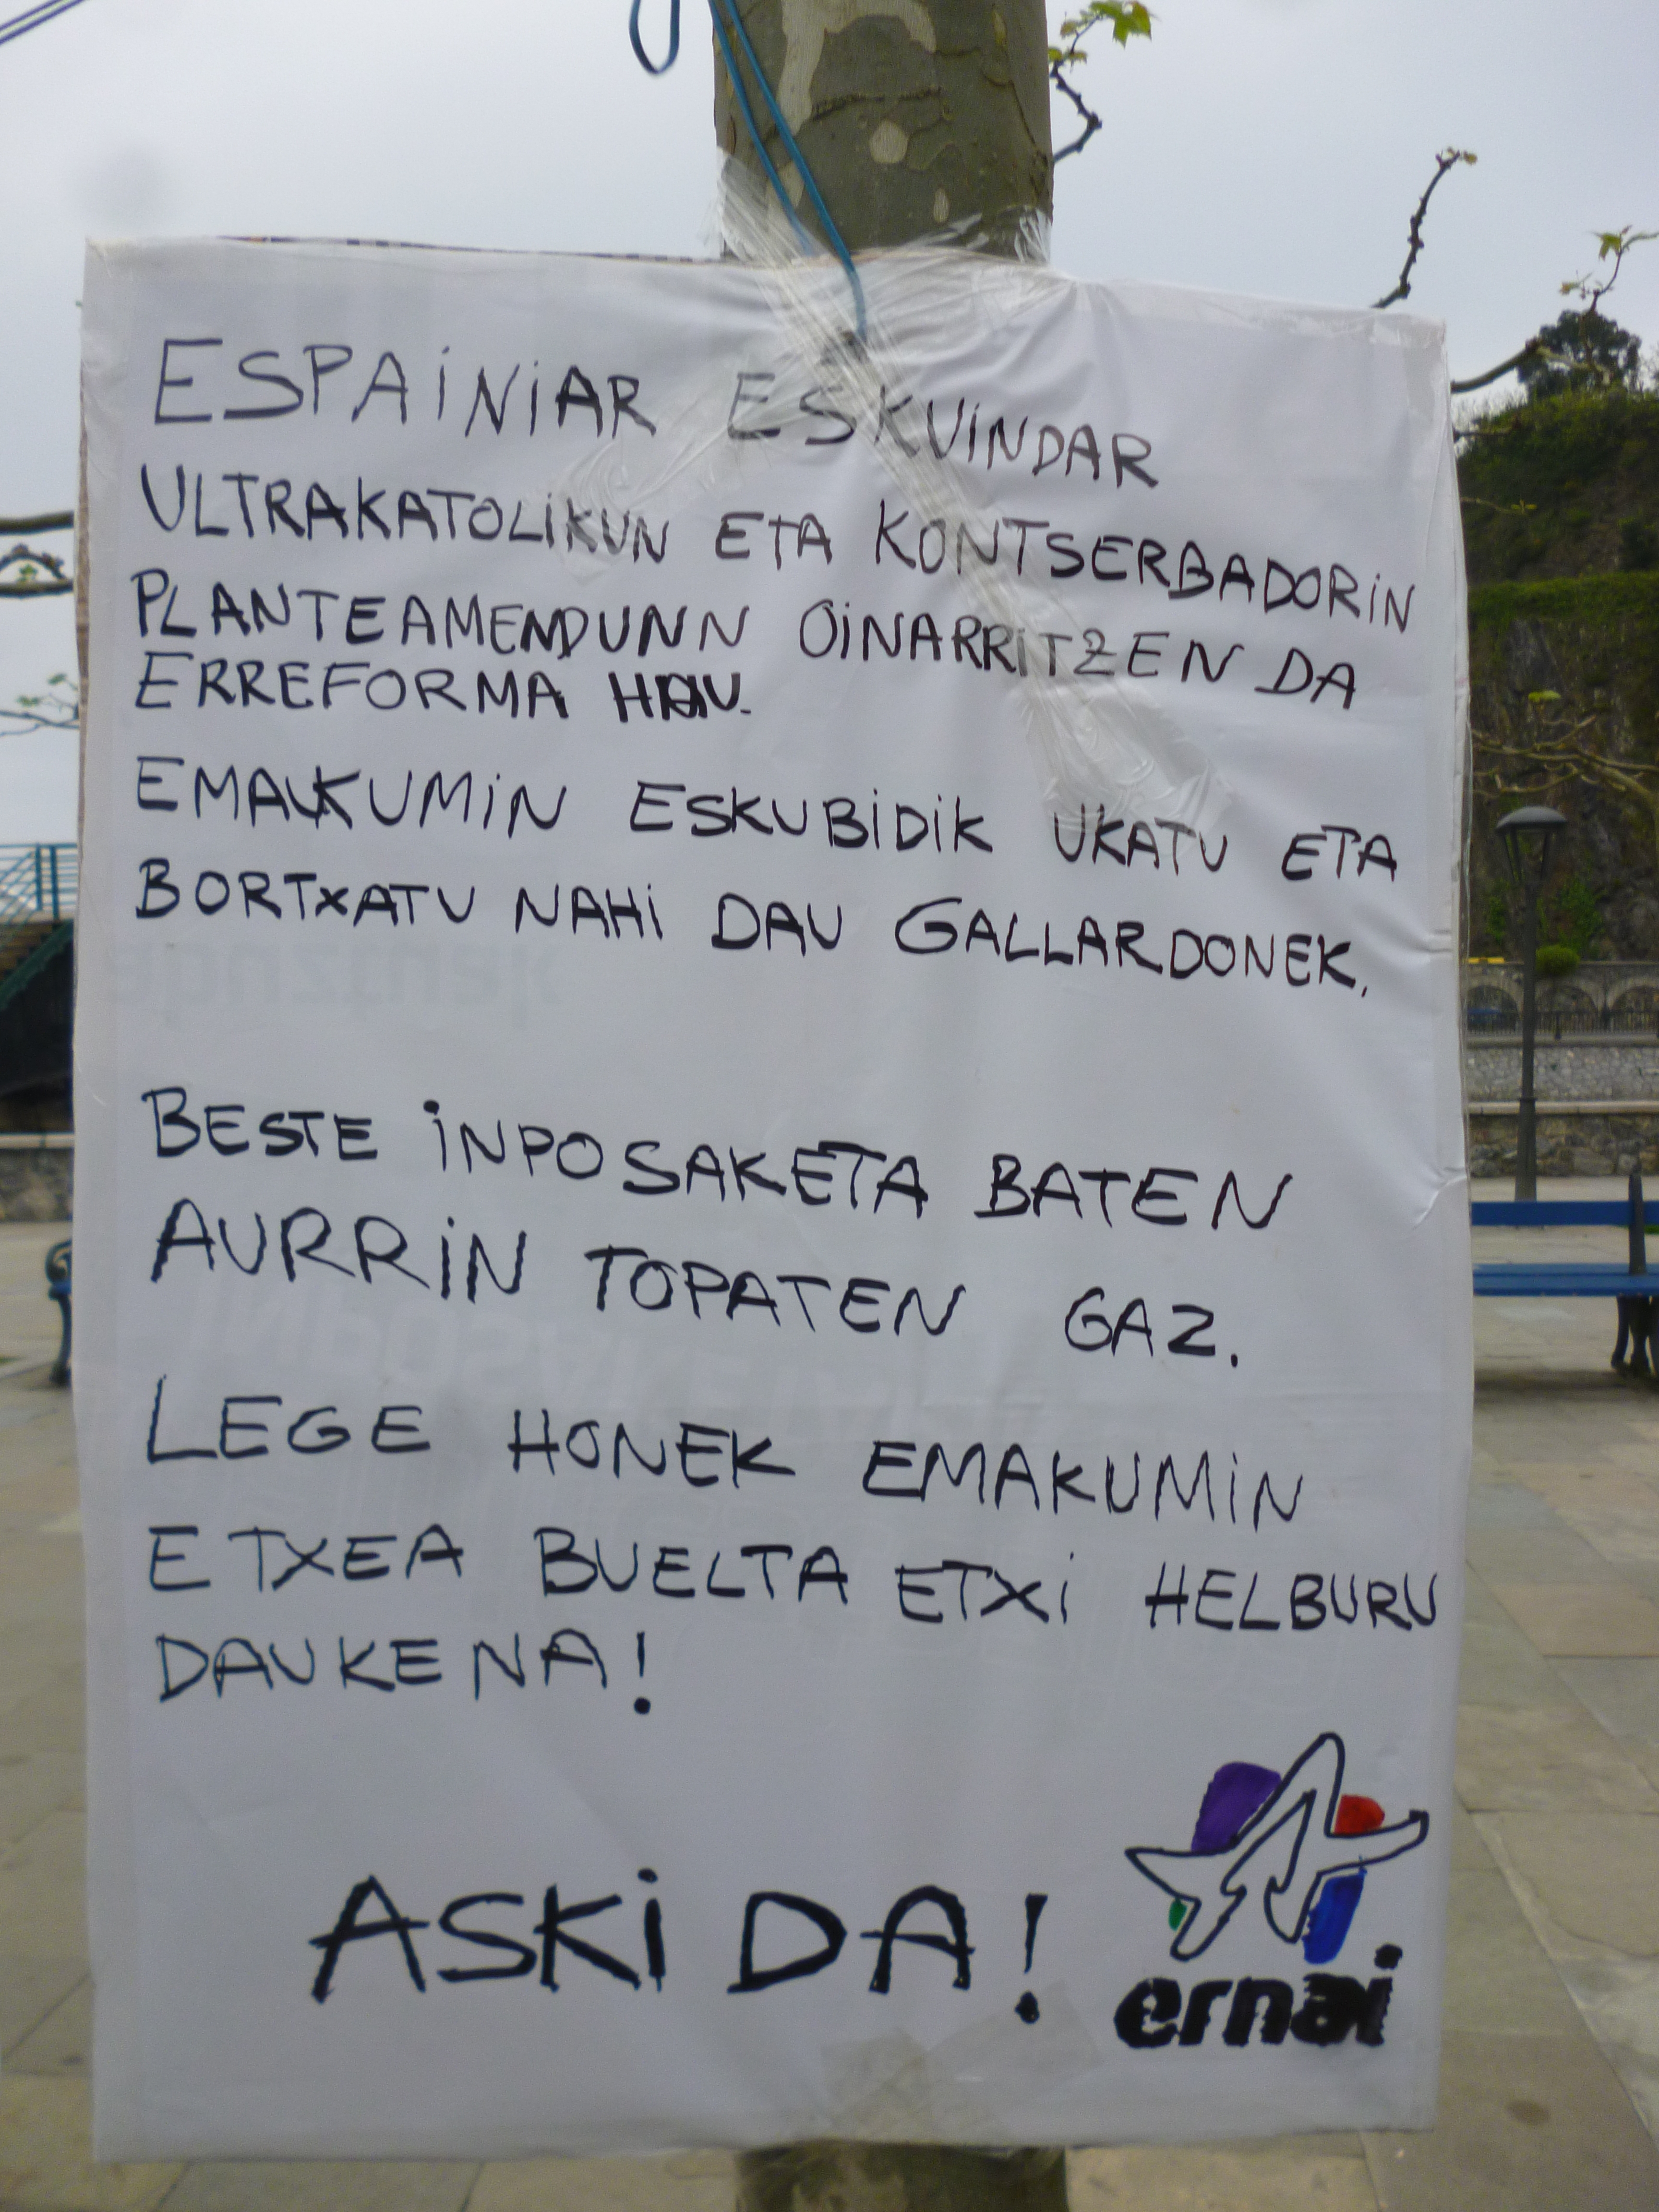 ESPAINIAR ESKUINDAR
ULTRAKATOLIKUN ETA KONTSERBADORIN
PLANTEAMENDUNN OINARRITZEN DA
ERREFORMA HAU.
EMAKUMIN ESKUBIDIK UKATU ETA
BORTXATU NAHI DAU GALLARDONEK.
BESTE INPOSAKETA BATEN
AURRIN TOPATEN GAZ.
LEGE HONEK EMAKUMIN
ETXEA BUELTA ETXI HELBURU
DAUKENA!
ASKI DA!
ernai